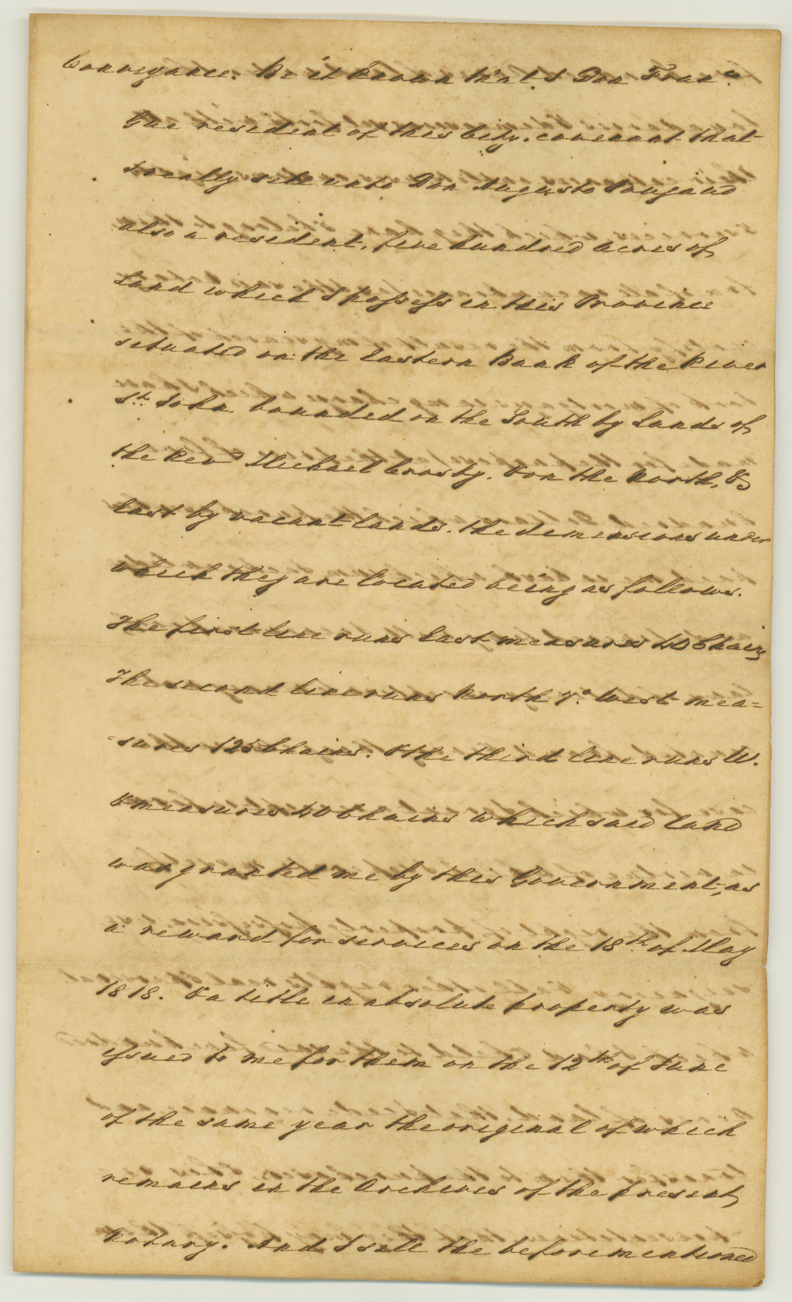 Conveyance. Be it known that I Don Franco.
Que resident of this City. covenant that
I really sell unto Don Augusto Pougaud
also a resident, five hundred acres of
Land which I possess in this Province
situated on the Eastern Bank of the River
St. John bounded on the South by Lands of
the Revd Michael Crosby. & on the North, &
East by vacant lands. the demensions under
which they are located being as follows.
The first line runs East measures 40 Chains
The second line runs North 7° West mea=
=sures 125 Chains. & the third line runs W.
& measures 40 Chains which said land
was granted me by this Government, as
a reward for services on the 18th of May
1818. & a title in absolute property was
issued to me for them on the 12th of June
of the same year the original of which
remains in the Archives of the present
Notary. And I sell the beforementioned